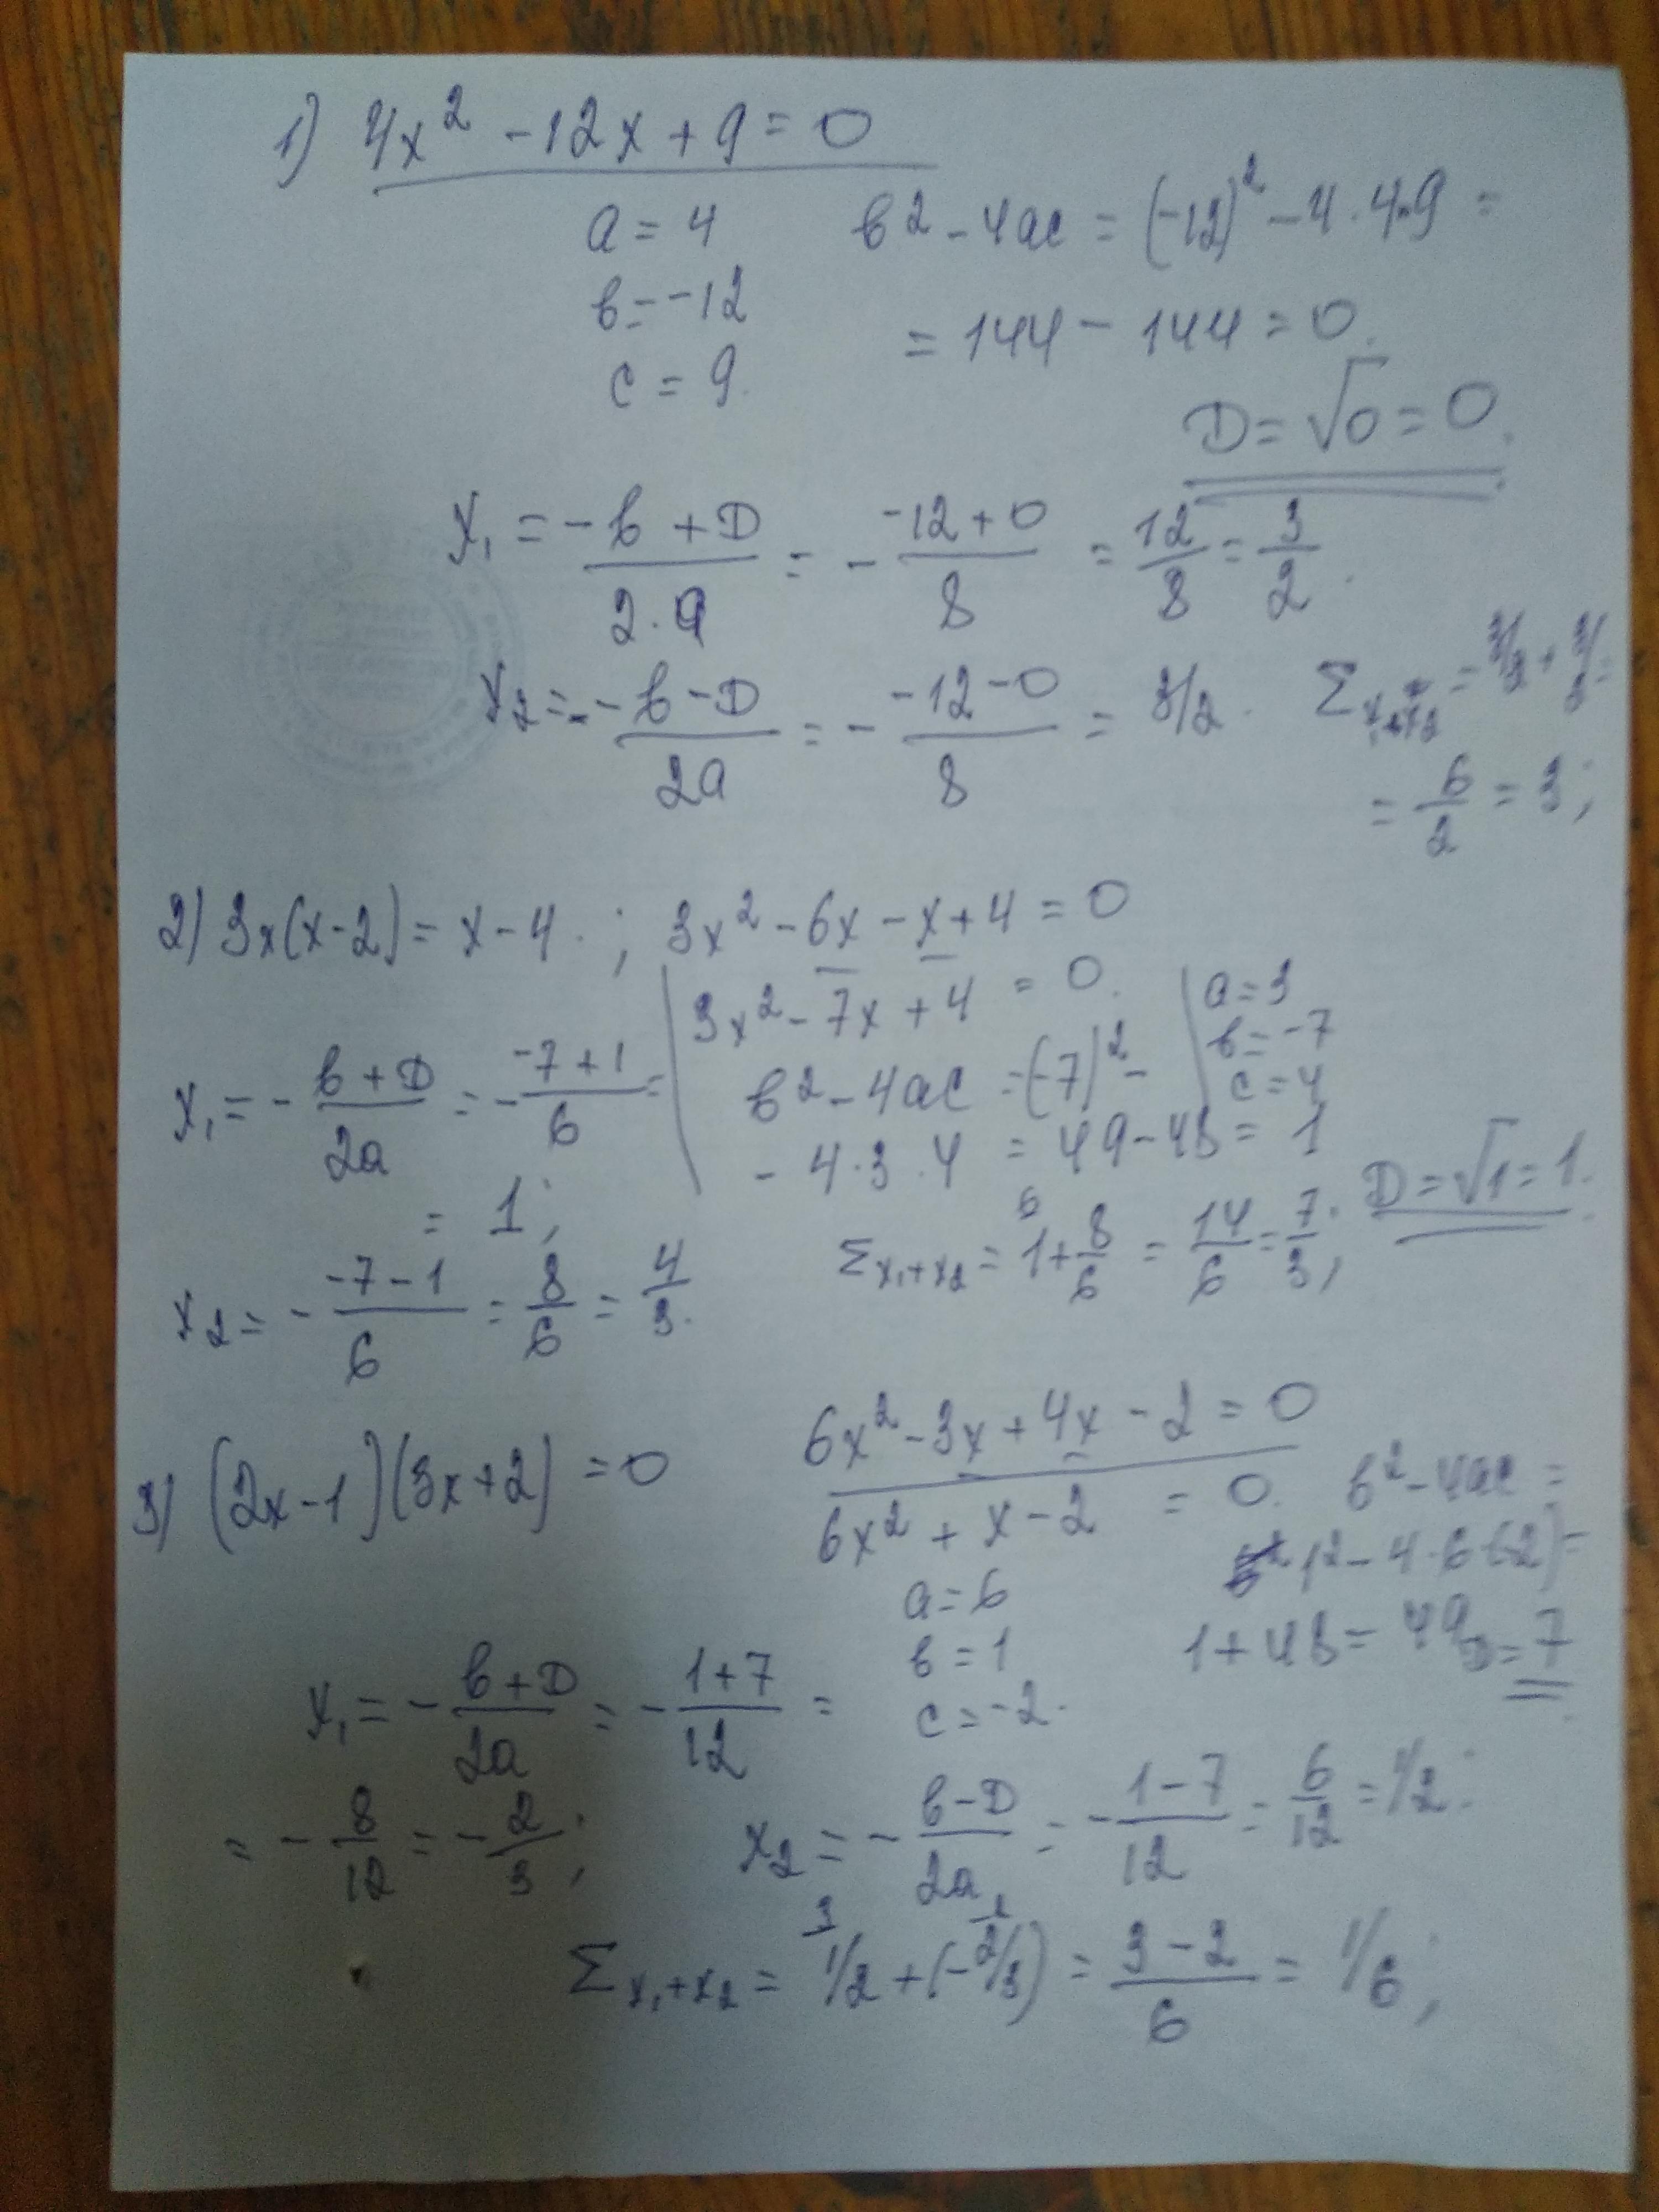 1) 4x² - 12x + 9 = 0
a = 4
b² - 4ac = (-12)² - 4 · 4 · 9 =
b = -12
= 144 - 144 = 0.
c = 9.
D = √0 = 0.
x₁ = (-b + D)/(2·a) = - (-12 + 0)/8 = 12/8 = 3/2.
x₂ = (-b - D)/(2a) = - (-12 - 0)/8 = 3/2.
Σ x₁+x₂ = 3/2 + 3/2 =
= 6/2 = 3;
2) 3x(x-2) = x - 4. ; 3x² - 6x - x + 4 = 0
3x² - 7x + 4 = 0.
a = 3
b = -7
c = 4
b² - 4ac = (-7)² -
- 4 · 3 · 4 = 49 - 48 = 1
D = √1 = 1.
x₁ = - (b + D)/(2a) = - (-7 + 1)/6 =
= 1;
x₂ = - (-7 - 1)/6 = 8/6 = 4/3.
6
Σ x₁+x₂ = 1 + 8/6 = 14/6 = 7/3;
3) (2x - 1)(3x + 2) = 0
6x² - 3x + 4x - 2 = 0
6x² + x - 2 = 0.
b² - 4ac =
1² - 4 · 6 (-2) =
1 + 48 = 49
D = 7
a = 6
b = 1
c = -2.
x₁ = - (b + D)/(2a) = - (1 + 7)/12 =
= - 8/12 = - 2/3;
x₂ = - (b - D)/(2a) = - (1 - 7)/12 = 6/12 = 1/2;
3 2
Σ x₁+x₂ = 1/2 + (-2/3) = (3 - 2)/6 = 1/6;